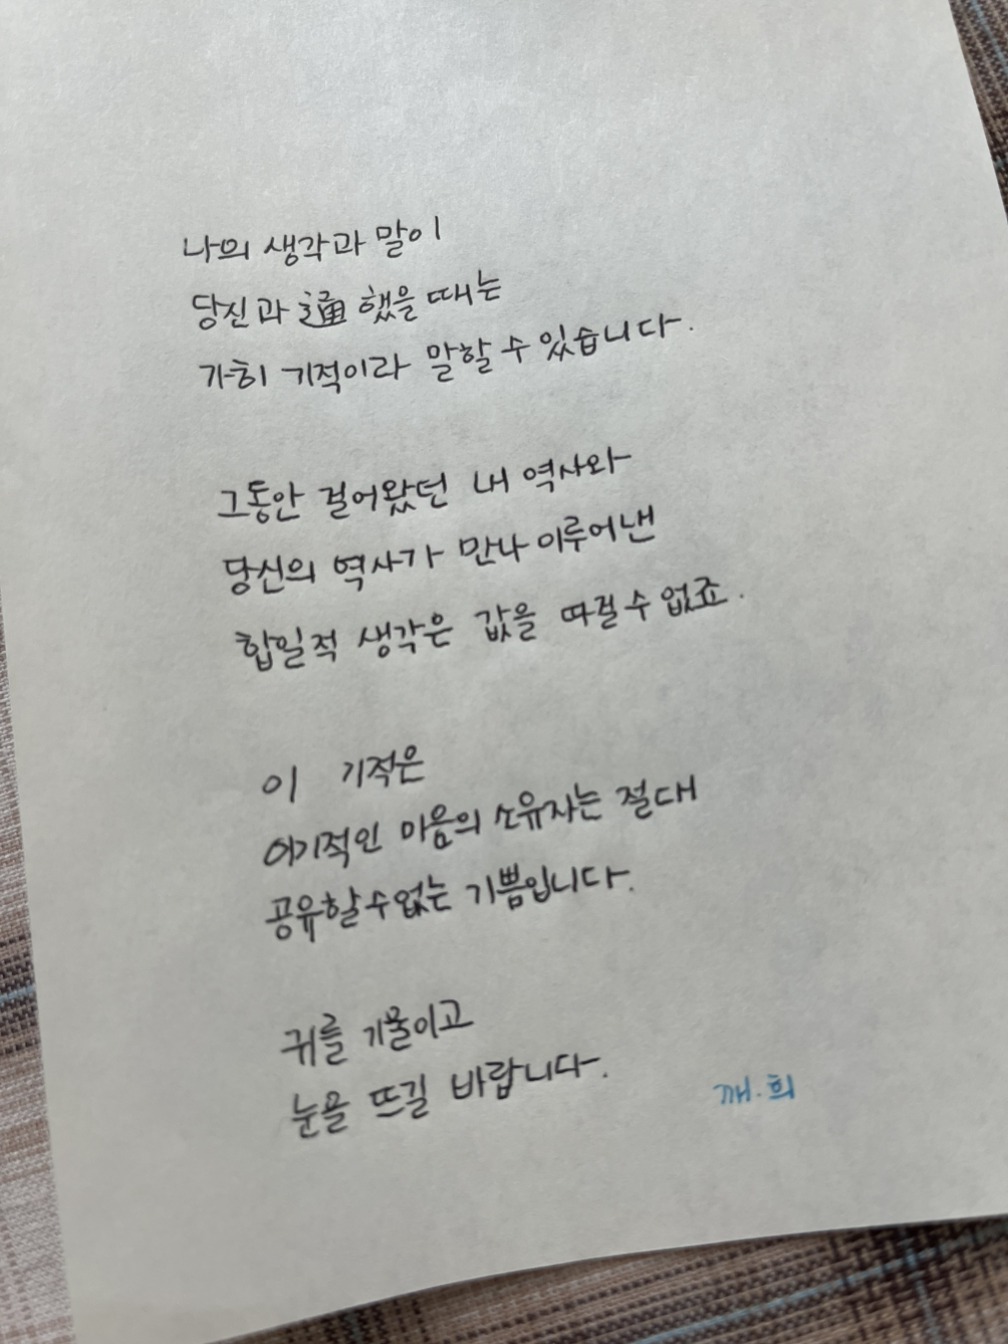 나의 생각과 말이
당신과 通했을 때는
가히 기적이라 말할 수 있습니다.
그동안 걸어왔던 내 역사와
당신의 역사가 만나 이루어낸
합일적 생각은 값을 따질 수 없죠.
이 기적은
이기적인 마음의 소유자는 절대
공유할 수 없는 기쁨입니다.
귀를 기울이고
눈을 뜨길 바랍니다.
깨.희